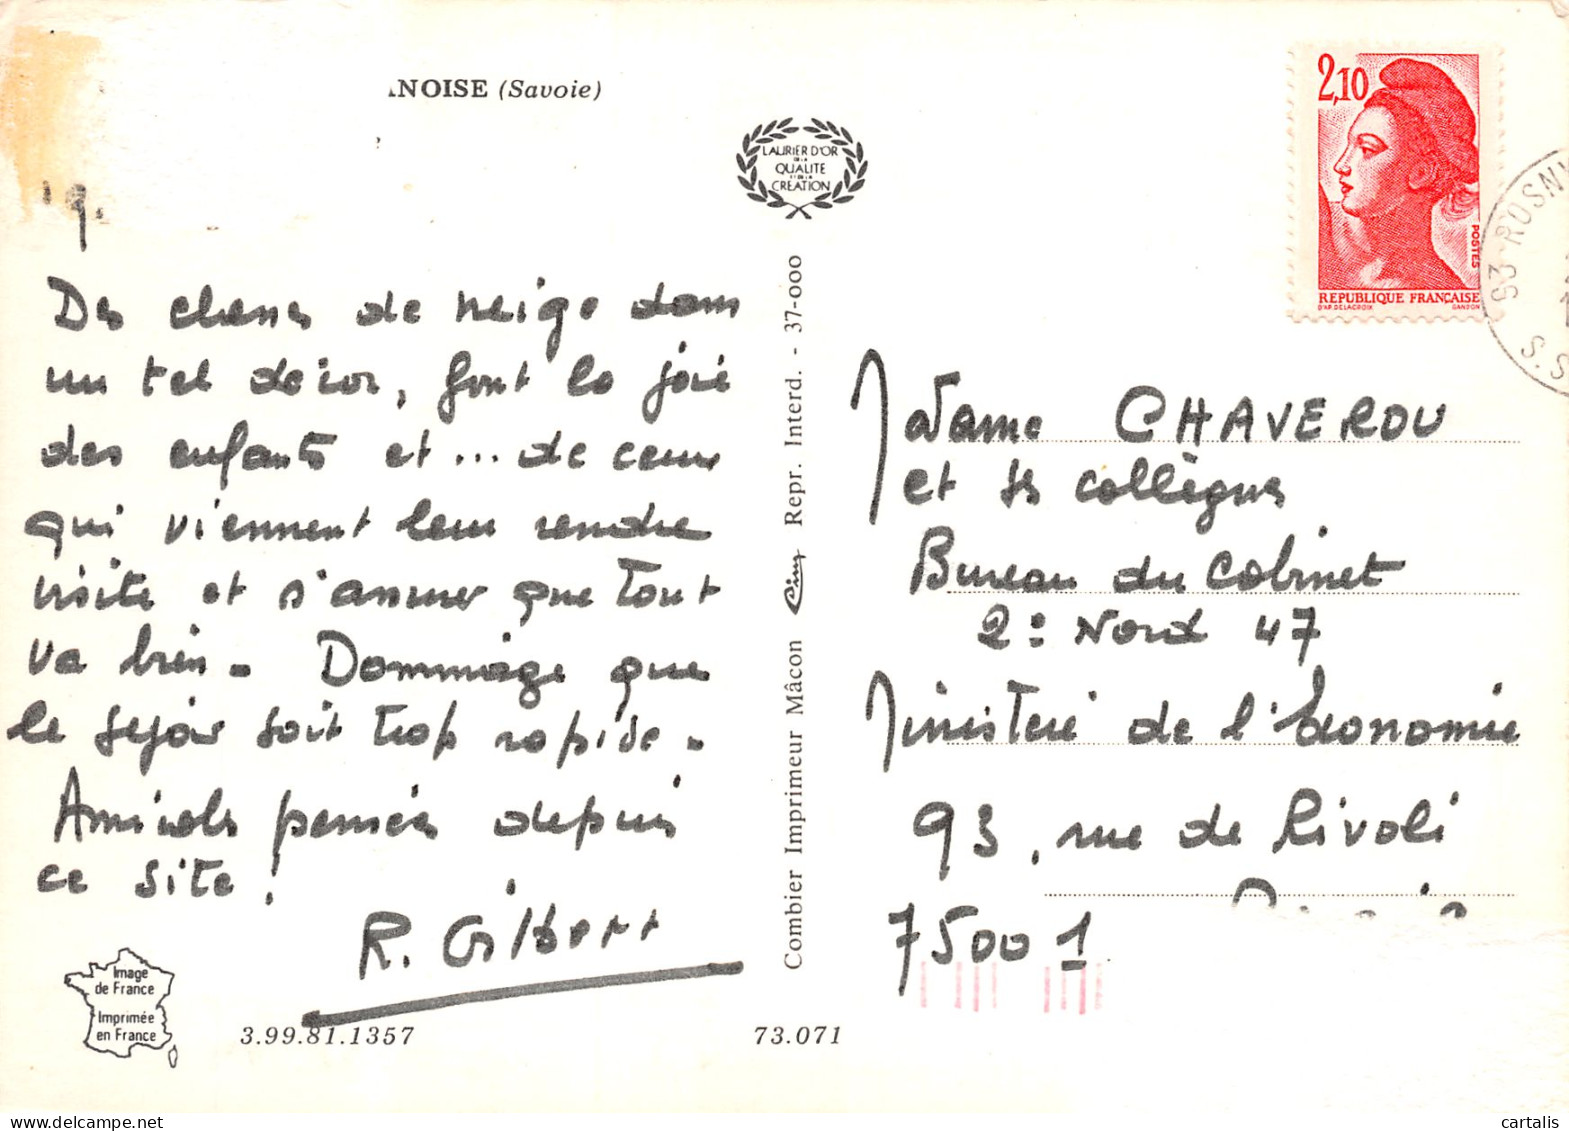 NOISE (Savoie)
LAURIER D'OR
DE LA
QUALITE
ET DE LA
CREATION
2,10
POSTES
REPUBLIQUE FRANÇAISE
D'AP. DELACROIX GANDON
93 ROSNY
S.S
9.
Des classes de neige dans
un tel décor, font la joie
des enfants et ... de ceux
qui viennent leur rendre
visite et s'assurer que tout
va bien. Dommage que
le séjour soit trop rapide.
Amicales pensées depuis
ce site!
R. Gilbert
Combier Imprimeur Mâcon Cim Repr. Interd. - 37-000
Madame CHAVEROU
et ses collègues
Bureau du Cabinet
2e Nord 47
Ministère de l'Economie
93, rue de Rivoli
75001
Image
de France
Imprimée
en France
3.99.81.1357
73.071
cartalis